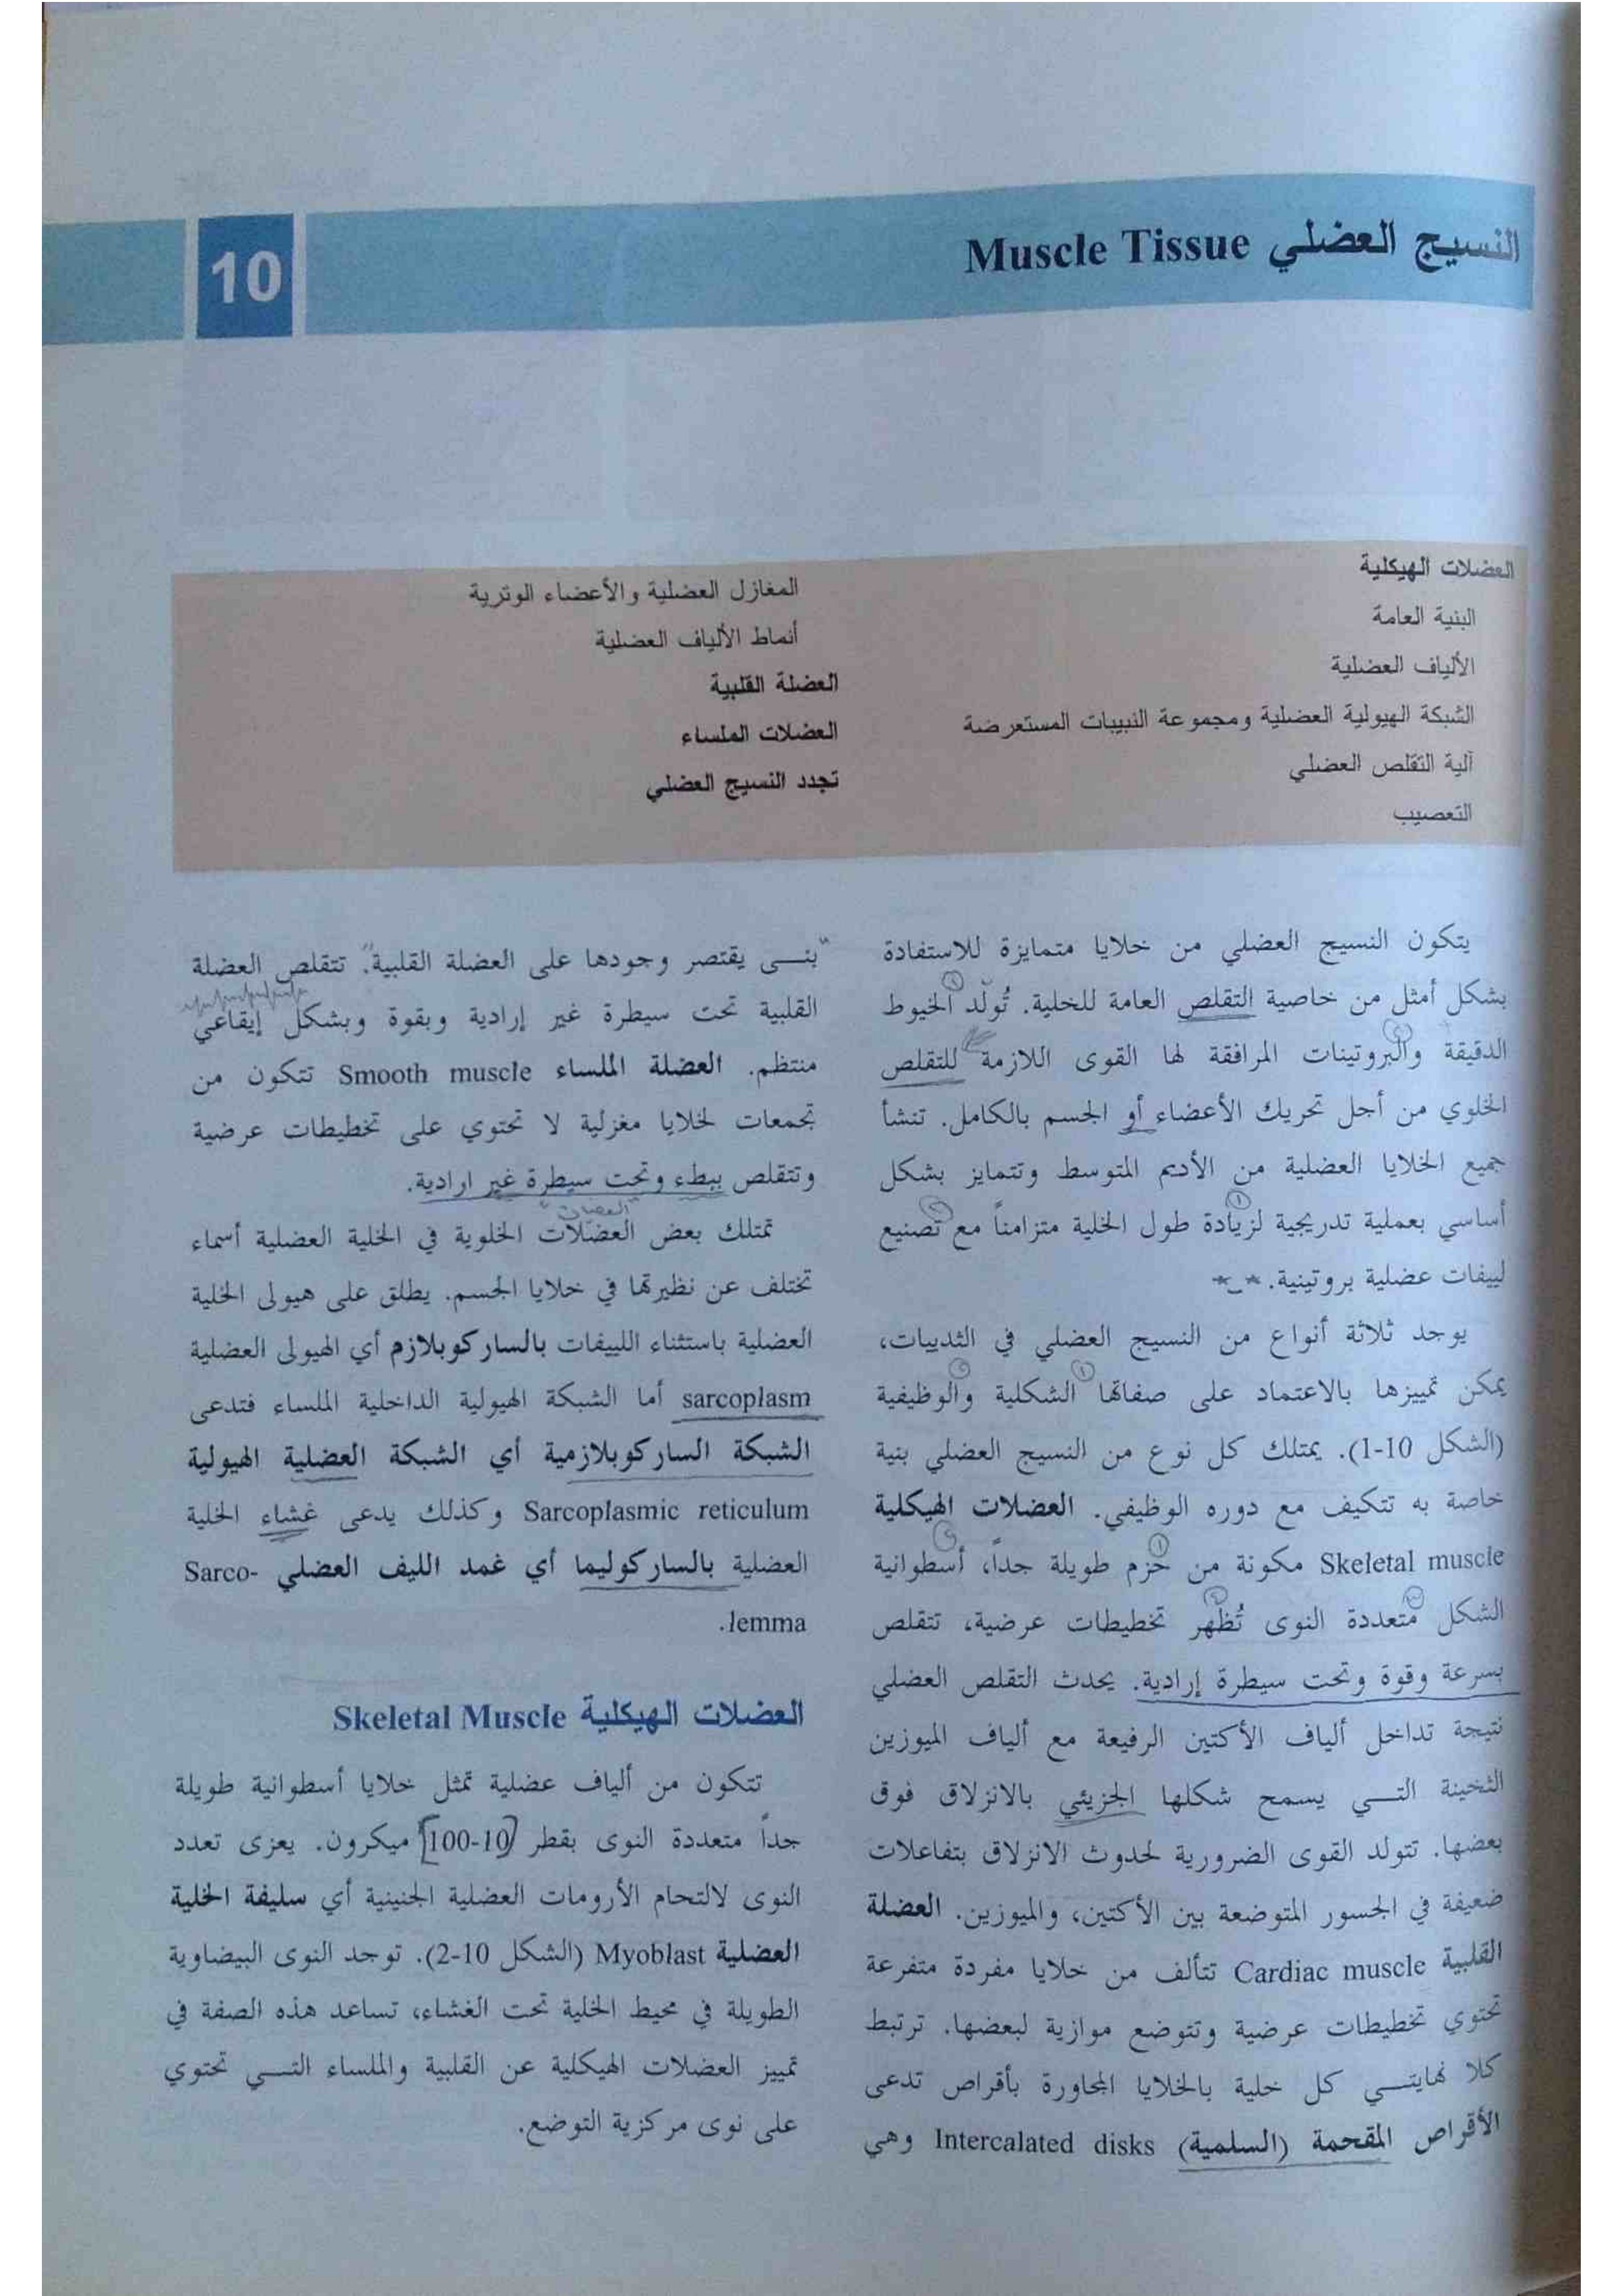 النسيج العضلي Muscle Tissue
10
العضلات الهيكلية
البنية العامة
الألياف العضلية
الشبكة الهيولية العضلية ومجموعة النبيبات المستعرضة
آلية التقلص العضلي
التعصيب
المغازل العضلية والأعضاء الوترية
أنماط الألياف العضلية
العضلة القلبية
العضلات الملساء
تجدد النسيج العضلي
يتكون النسيج العضلي من خلايا متمايزة للاستفادة
بشكل أمثل من خاصية التقلص العامة للخلية. تُولّد الخيوط
الدقيقة والبروتينات المرافقة لها القوى اللازمة للتقلص
الخلوي من أجل تحريك الأعضاء أو الجسم بالكامل. تنشأ
جميع الخلايا العضلية من الأديم المتوسط وتتمايز بشكل
أساسي بعملية تدريجية لزيادة طول الخلية متزامناً مع تصنيع
لييفات عضلية بروتينية.
يوجد ثلاثة أنواع من النسيج العضلي في الثدييات،
يمكن تمييزها بالاعتماد على صفاتها الشكلية والوظيفية
(الشكل 10-1). يمتلك كل نوع من النسيج العضلي بنية
خاصة به تتكيف مع دوره الوظيفي. العضلات الهيكلية
Skeletal muscle مكونة من حزم طويلة جداً، أسطوانية
الشكل متعددة النوى تُظهر تخطيطات عرضية، تتقلص
بسرعة وقوة وتحت سيطرة إرادية. يحدث التقلص العضلي
نتيجة تداخل ألياف الأكتين الرفيعة مع ألياف الميوزين
الثخينة التي يسمح شكلها الجزيئي بالانزلاق فوق
بعضها. تتولد القوى الضرورية لحدوث الانزلاق بتفاعلات
ضعيفة في الجسور المتوضعة بين الأكتين، والميوزين. العضلة
القلبية Cardiac muscle تتألف من خلايا مفردة متفرعة
تحتوي تخطيطات عرضية وتتوضع موازية لبعضها. ترتبط
كلا نهايتي كل خلية بالخلايا المجاورة بأقراص تدعى
الأقراص المقحمة (السلمية) Intercalated disks وهي
"بنى يقتصر وجودها على العضلة القلبية". تتقلص العضلة
القلبية تحت سيطرة غير إرادية وبقوة وبشكل إيقاعي
منتظم. العضلة الملساء Smooth muscle تتكون من
تجمعات لخلايا مغزلية لا تحتوي على تخطيطات عرضية
وتتقلص ببطء وتحت سيطرة غير ارادية.
"العضيات"
تمتلك بعض العضلات الخلوية في الخلية العضلية أسماء
تختلف عن نظيرتها في خلايا الجسم. يطلق على هيولى الخلية
العضلية باستثناء الليفات بالساركوبلازم أي الهيولى العضلية
sarcoplasm أما الشبكة الهيولية الداخلية الملساء فتدعى
الشبكة الساركوبلازمية أي الشبكة العضلية الهيولية
Sarcoplasmic reticulum وكذلك يدعى غشاء الخلية
العضلية بالساركوليما أي غمد الليف العضلي Sarco-
lemma.
العضلات الهيكلية Skeletal Muscle
تتكون من ألياف عضلية تمثل خلايا أسطوانية طويلة
جداً متعددة النوى بقطر 10-100 ميكرون. يعزى تعدد
النوى لالتحام الأرومات العضلية الجنينية أي سليفة الخلية
العضلية Myoblast (الشكل 10-2). توجد النوى البيضاوية
الطويلة في محيط الخلية تحت الغشاء، تساعد هذه الصفة في
تمييز العضلات الهيكلية عن القلبية والملساء التي تحتوي
على نوى مركزية التوضع.